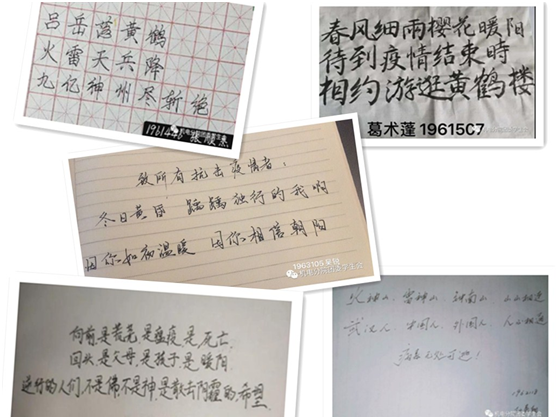 吕岳落黄鹤
火雷天兵降
九亿神州尽新绝
春风细雨樱花暖阳
待到疫情结束時
相约游逛黄鹤楼
葛术蓬 19615C7
致所有抗击疫情者：
冬日黄昏 踽踽独行的我啊
因你如初温暖 因你相信朝阳
向前是荒芜,是瘟疫,是死亡,
回头是父母,是孩子,是暖阳,
逆行的人们,不是佛,不是神,是敲击阴霾的,希望.
火神山、雷神山、钟南山、山山相连
武汉人、中国人、外国人、人人相连
病毒无处可逃！